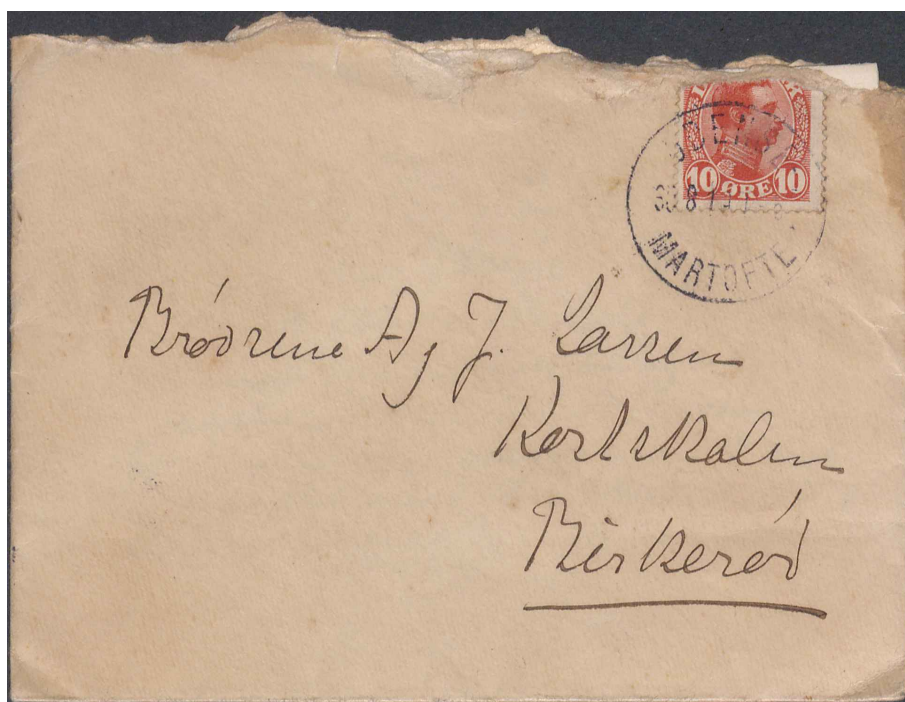 10 ØRE 10
MARTOFTE
Brødrene A, J. Larsen
Kostskolen
Birkerød